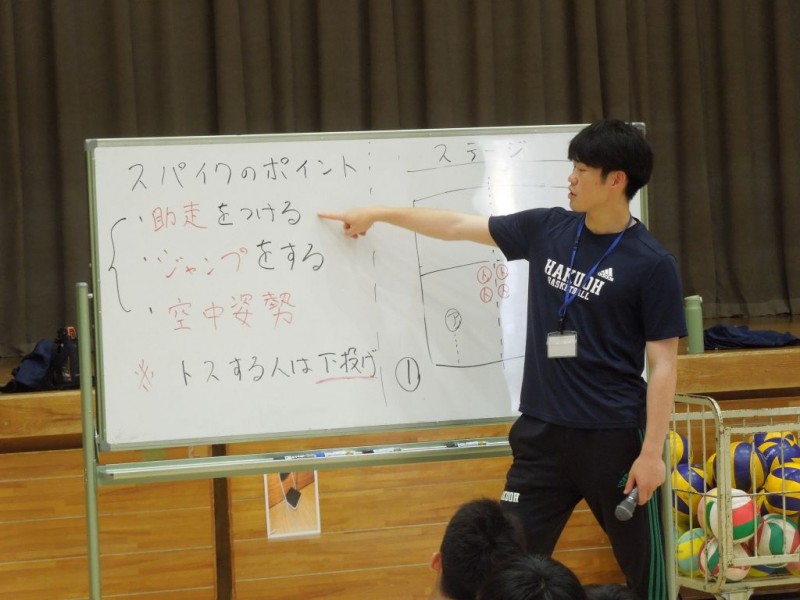 スパイクのポイント
・助走をつける
・ジャンプをする
・空中姿勢
※ トスする人は下投げ
①
ステージ
HAKUOH
BASKETBALL
adidas
HAKUOH